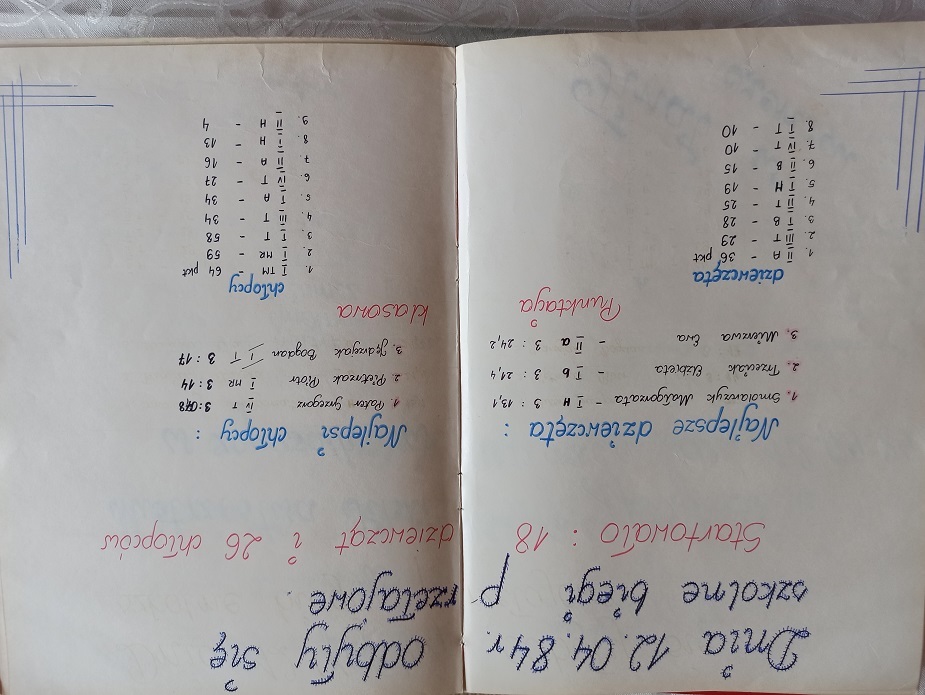 Dnia 12.04.84r. odbyły się
szkolne biegi przełajowe.
Startowało : 18 dziewcząt i 26 chłopców
Najlepsze dziewczęta :
1. Smolarczyk Małgorzata - I H 3 : 13,1
2. Trzeciak Elżbieta - I b 3 : 21,4
3. Mierzwa Ewa - II a 3 : 24,2
Najlepsi chłopcy :
1. Pater Grzegorz IV T
2. Pietrzak Piotr I MR 3 : 14
3. Jędrzejak Bogdan I T 3 : 17
Punktacja klasowa
dziewczęta
1. II A - 36 pkt
2. III T - 29
3. I B - 28
4. II T - 25
5. I H - 19
6. II B - 15
7. IV T - 10
8. I T - 10
chłopcy
1. I TM - 64 pkt
2. I MR - 59
3. I T - 58
4. III T - 34
5. I A - 34
6. IV T - 27
7. II A - 16
8. I H - 13
9. II H - 4